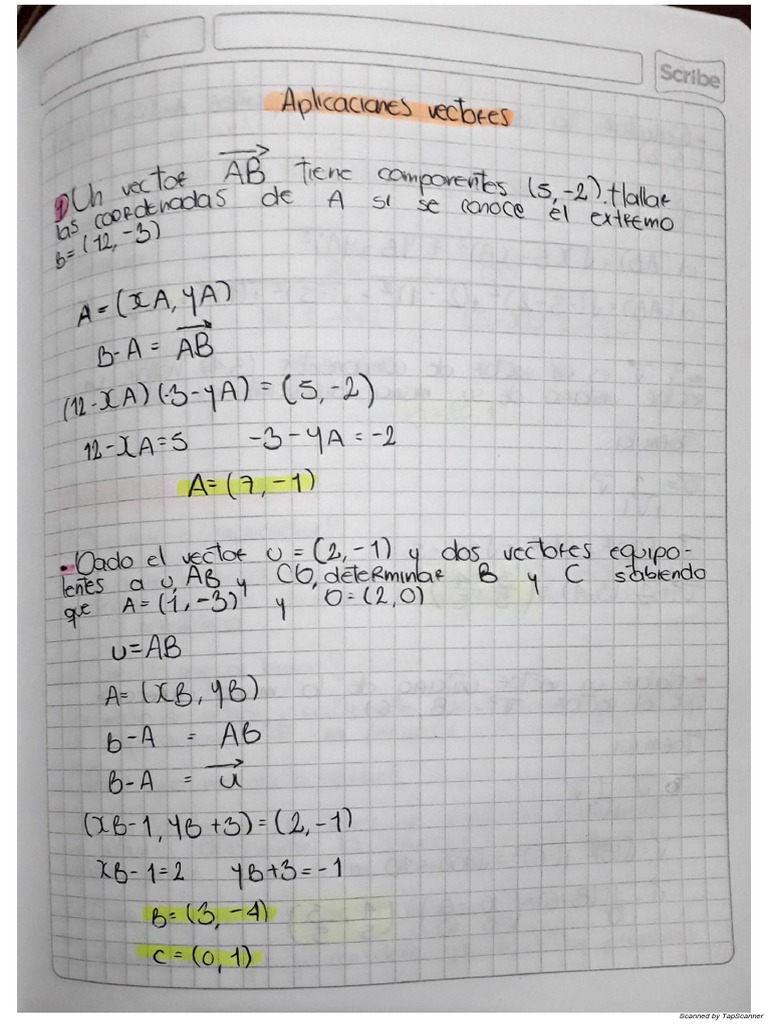 Scribe
Aplicaciones vectores
1) Un vector AB tiene componentes (5, -2). Hallar
las coordenadas de A si se conoce el extremo
B=(12, -3)
A=(xA, yA)
B-A = AB
(12-xA)(-3-yA)=(5,-2)
12-xA=5 -3-yA=-2
A=(7,-1)
• Dado el vector u=(2,-1) y dos vectores equipo-
lentes a u, AB y CD, determinar B y C sabiendo
que A=(1,-3) y D=(2,0)
u=AB
A=(xB, yB)
B-A = AB
B-A = u
(xB-1, yB+3)=(2,-1)
xB-1=2 yB+3=-1
B=(3,-4)
C=(0,1)
Scanned by TapScanner